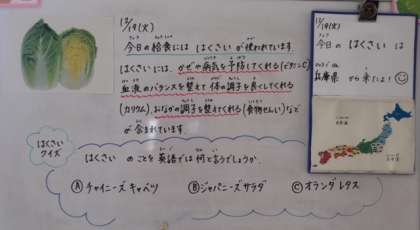 12/19(火)
今日の給食には はくさい が使われています。
はくさいには、かぜや病気を予防してくれる(ビタミンC)
血液のバランスを整えて体の調子を良くしてくれる
(カリウム)、おなかの調子を整えてくれる(食物せんい)など
が含まれています。
12/19(火)
今日の はくさい は
兵庫県 から来たよ!
はくさい
クイズ
はくさい のことを英語では何と言うでしょうか。
Ⓐ チャイニーズキャベツ Ⓑ ジャパニーズサラダ Ⓒ オランダレタス